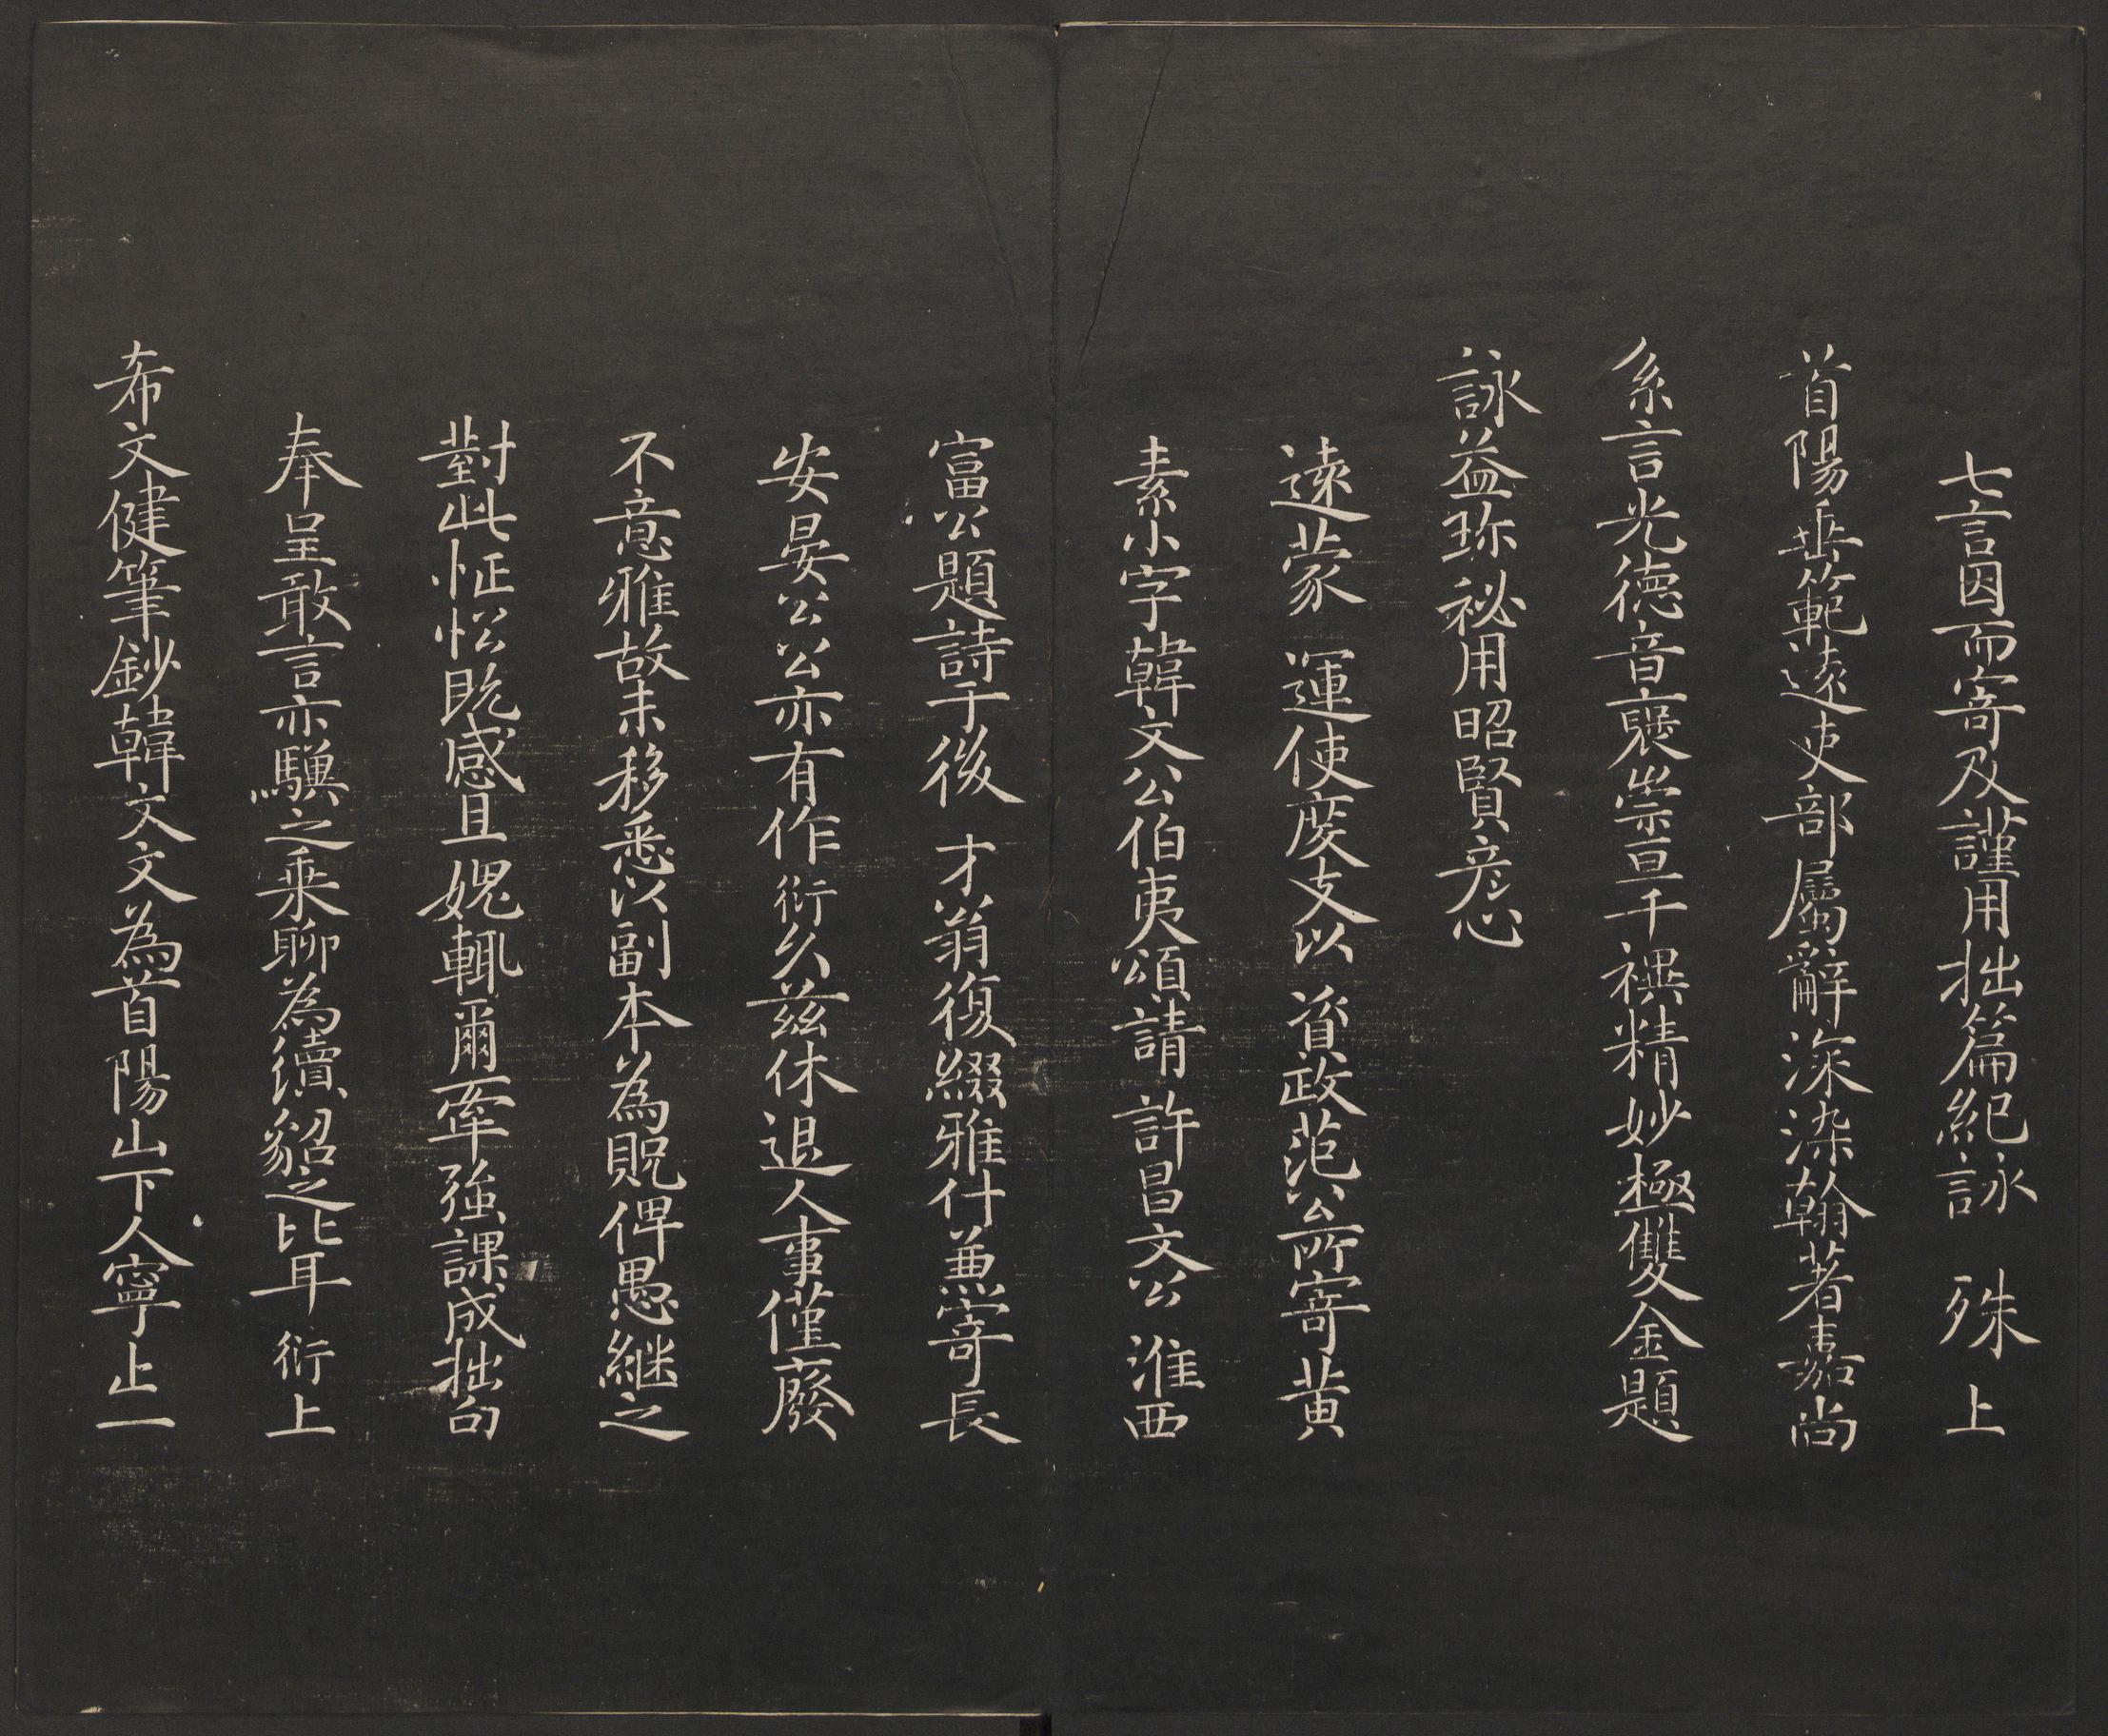 七言因而寄及謹用拙篇紀詠 殊 上
首陽垂範遠吏部屬辭深染翰著嘉尚
系言光德音褒崇亘千禩精妙極雙金題
詠益珎祕用昭賢彥心
遠蒙 運使度支以 資政范公所寄黃
素小字韓文公伯夷頌請 許昌文公 淮西
富公題詩于後 才翁復綴雅什兼寄長
安晏公公亦有作 衍久茲休退人事僅廢
不意雅故未移悉以副本為貺俾愚繼之
對此怔忪既感且媿輒爾牽強課成拙句
奉呈敢言亦驥之乘聊為續貂之比耳 衍上
希文健筆鈔韓文文為首陽山下人寧止一